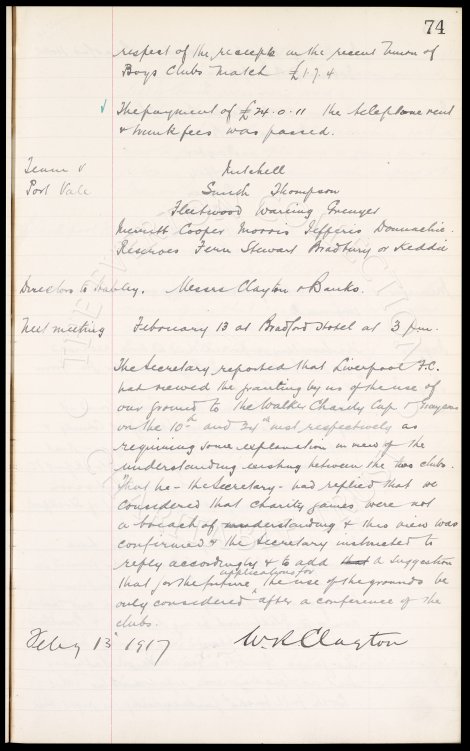 74
respect of the receipts in the recent Union of
Boys Clubs match £1.7.4
✓ The payment of £24.0.11 the telephone rent
& trunk fees was passed.
Team v Mitchell
Port Vale Smith Thompson
Fleetwood Wareing Grenyer
Merritt Cooper Morris Jefferis Donnachie.
Reserves Fern Stewart Bradbury or Keddie
Directors to Hanley. Messrs Clayton & Banks.
Next meeting February 13 at Bradford Hotel at 3 pm.
The Secretary reported that Liverpool F.C.
had viewed the granting by us of the use of
our ground to the Walker Charity Cup &
on the 10th and 24th inst respectively as
requiring some explanation in view of the
understanding existing between the two clubs.
That he - the Secretary - had replied that we
considered that charity games were not
a breach of understanding & this view was
confirmed & the Secretary instructed to
reply accordingly & to add that a suggestion
that for the future applications for the use of the grounds be
only considered after a conference of the
clubs.
Feby 13 1917 W.R. Clayton